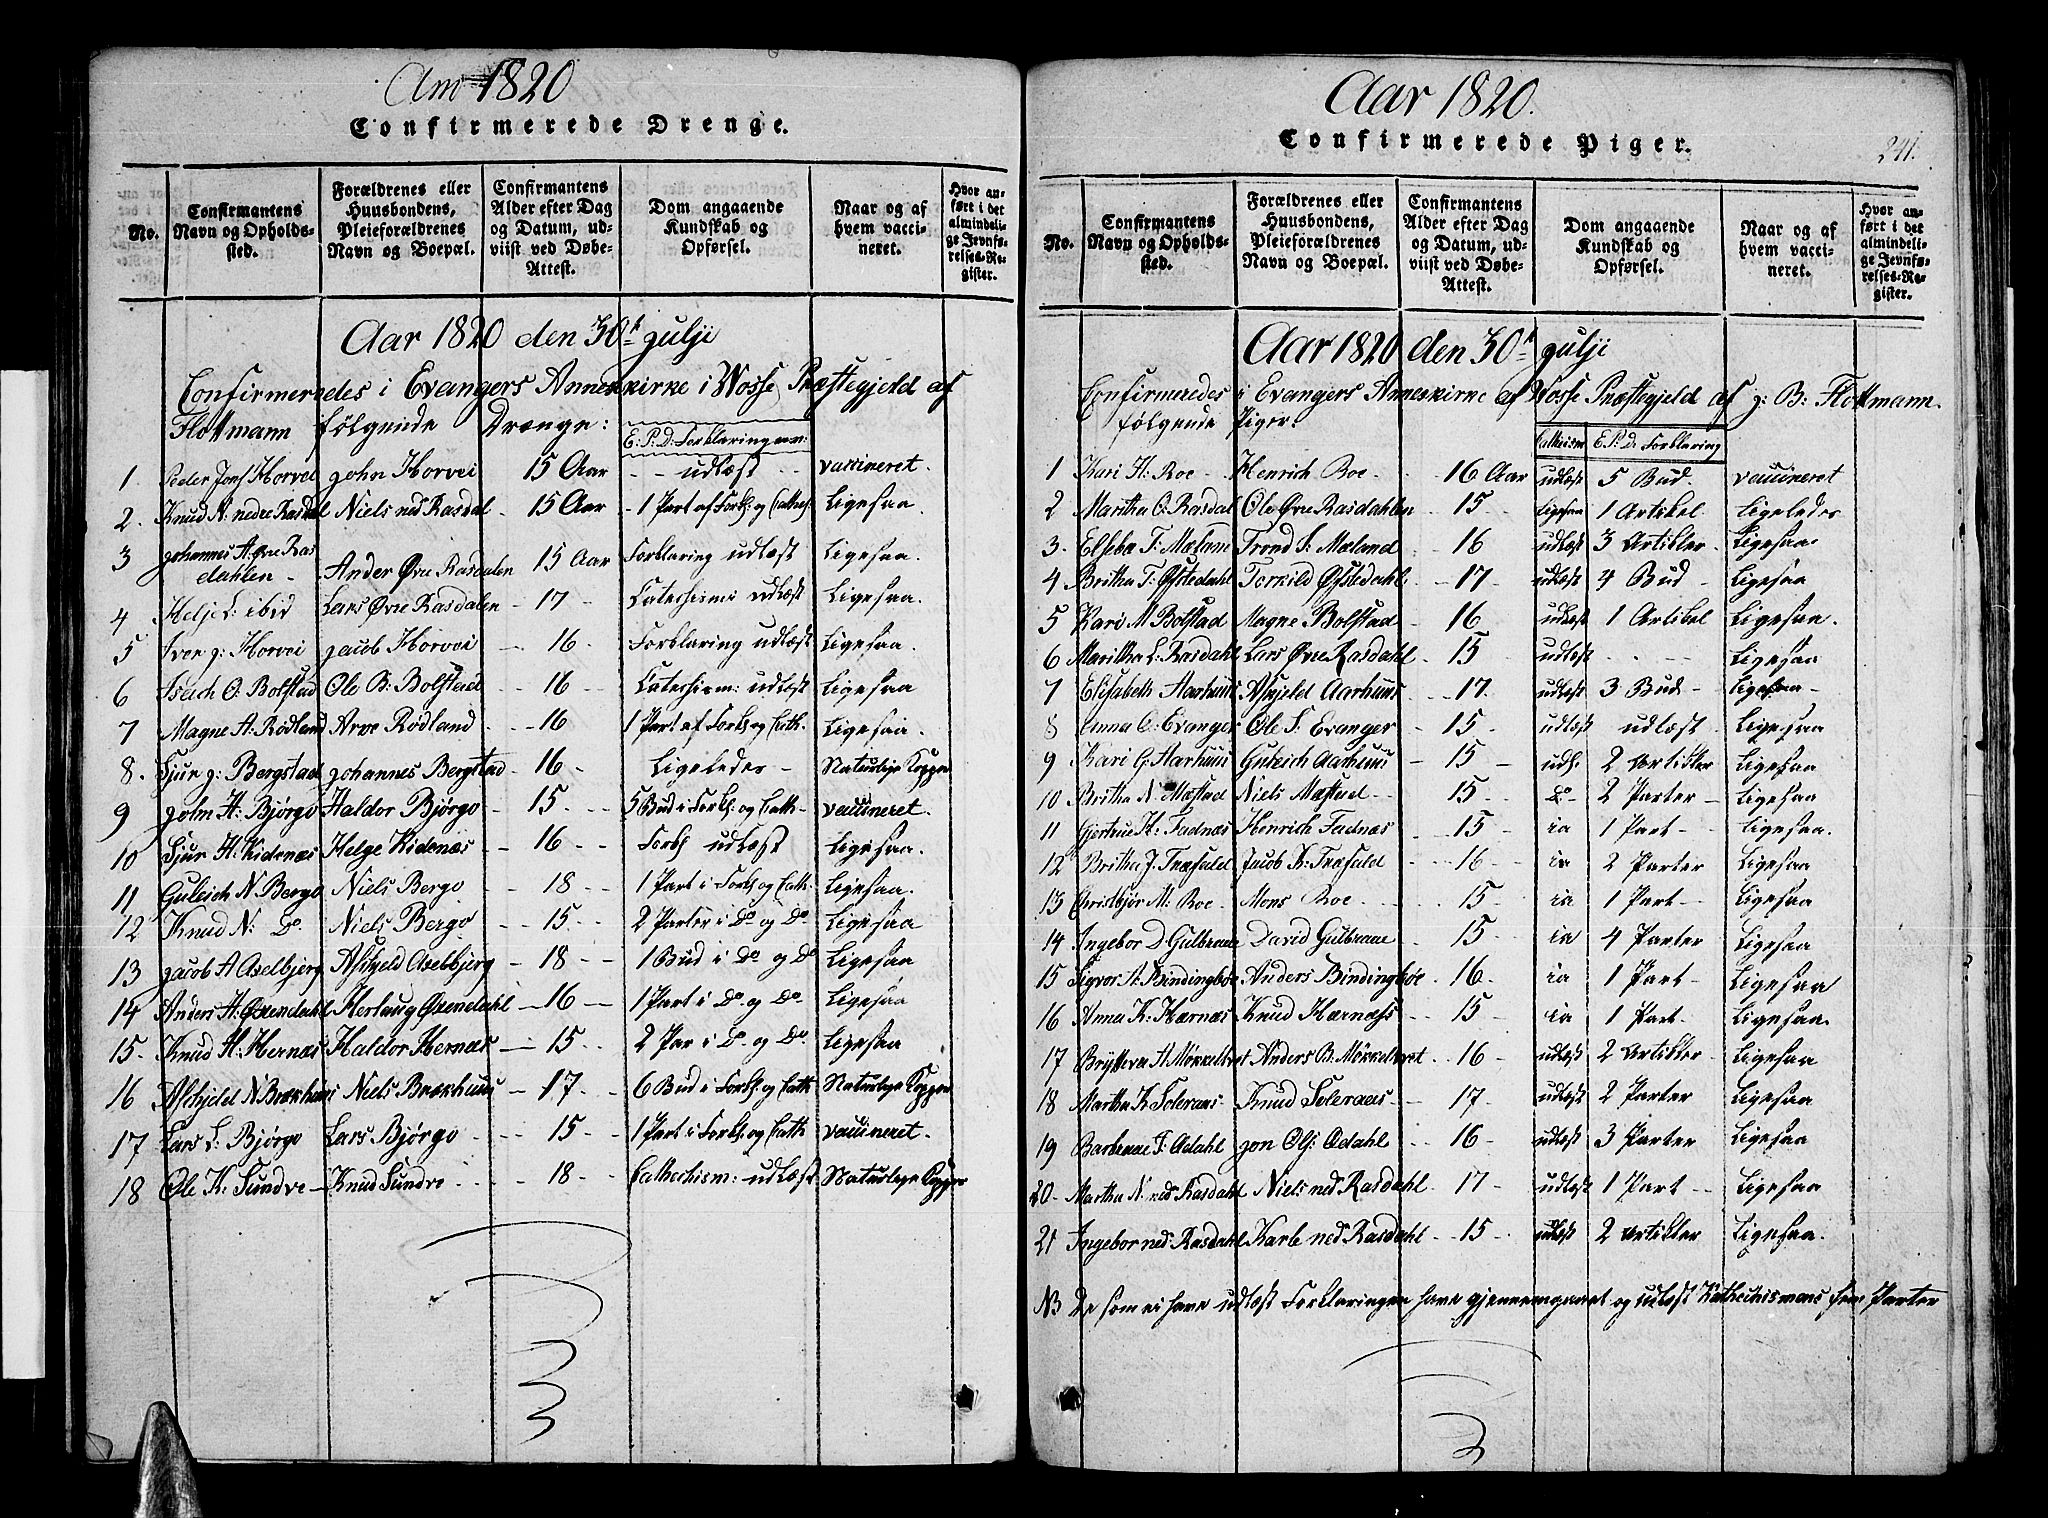 Ano 1820
Confirmerede Drenge.
No.
Confirmantens
Navn og Opholds-
sted.
Forældrenes eller
Huusbondens,
Pleieforældrenes
Navn og Boepæl.
Confirmantens
Alder efter Dag
og Datum, ud-
viist ved Døbe-
Attest.
Dom angaaende
Kundskab og
Opførsel.
Naar og af
hvem vacci-
neret.
Hvor an-
ført i det
almindeli-
ge Jevnfø-
relses-Re-
gister.
Aar 1820 den 30te Julji
Confirmeredes i Evangers Annexkirke i Wosse Præstegjeld af
Flottmann følgende Drænge:
E: P: D: Forklaringen:
1 Peder Jons Horvei John Horvei 15 Aar udlæst vaccineret.
2. Knud N: nedre Rasdal Niels ned Rasdal 15 Aar 1 Part af Forkl: og Cathes: Ligesaa
3 Johannes A: Øvre Ras
dahlen Ander Øvre Rasdalen 15 Aar Forklaring udlæst Ligesaa.
4 Helje L: ibid Lars Øvre Rasdalen 17 Catechismi udlæst Ligesaa.
5 Iver J: Horvei Jacob Horvei 16 Forklaring udlæst Ligesaa.
6 Isach O: Bolstad Ole B: Bolstad 16 Catechism: udlæst Ligesaa
7 Magne A: Rødland Arve Rødland 16 1 Part af Forkl: og Cath: Ligesaa.
8. Sjur J: Bergstad Johannes Bergstad 16 Ligeledes Naturlige Kopper
9 John H: Bjørgo Haldor Bjørgo 15 5 Bud i Forkl: og Cath: vaccineret.
10 Sjur H: Kidenæs Helge Kidenæs 16 Forkl udlæst Ligesaa.
11 Guleich N Bergo Niels Bergo 18 1 Part i Forkl: og Cath: Ligesaa.
12 Knud N: Do Niels Bergo 15 2 Parter i Do og Do Ligesaa
13 Jacob A Aselbjerg Askjeld Aselbjerg 18 1 Bud i Do og Do Ligesaa
14 Anders H: Øxendahl Herlaug Øxendahl 16 1 Part i Do og Do Ligesaa
15. Knud H: Hernæs Haldor Hernæs 15 2 Par i Do og Do Ligesaa
16 Askjeld N Brækhuus Niels Brækhuus 17 6 Bud i Forkl: og Cath Naturlige Kopper
17 Lars L: Bjørgo Lars Bjørgo 15 1 Part i Forkl: og Cath vaccineret.
18 Ole K: Sundve Knud Sundve 18 Cathechism: udlæst Naturlige Kopper
Aar 1820.
Confirmerede Piger.
241.
No.
Confirmantens
Navn og Opholds-
sted.
Forældrenes eller
Huusbondens,
Pleieforældrenes
Navn og Boepæl.
Confirmantens
Alder efter Dag
og Datum, ud-
viist ved Døbe-
Attest.
Dom angaaende
Kundskab og
Opførsel.
Naar og af
hvem vacci-
neret.
Hvor an-
ført i det
almindeli-
ge Jevnfø-
relses-Re-
gister.
Aar 1820 den 30te Julji
Confirmeredes i Evangers Annexkirke af Wosse Præstegjeld af J: B: Flottmann.
følgende Piger:
Cathism E. P. D: Forklaring
1 Kari H: Roe Henrich Roe 16 Aar udlæst 5 Bud vaccineret
2 Maritha O: Rasdal Ole Øvre Rasdahlen 15 Ligesaa 1 Artikel Ligeledes
3. Elseba T: Mæland Trond S: Mæland 16 udlæst 3 Artikler Ligesaa
4 Britha T: Øfstedahl Torkild Øfstedahl 17 udlæst 4 Bud Ligesaa
5 Kari M Bolstad Magne Bolstad 16 udlæst 1 Artikel Ligesaa.
6 Maritha L: Rasdahl Lars Øvre Rasdahl 15 udlæst Ligesaa
7 Elisabeth Aarhuus Askjeld Aarhuus 17. udlæst 3 Bud Ligesaa
8 Anna O: Evanger Ole S: Evanger 15 udlæst udlæst Ligesaa
9 Kari G Aarhuus Guleich Aarhuus 15 udl. 2 Artikler Ligesaa
10 Britha N. Mæstad Niels Mæstad 15 Do 2 Parter Ligesaa
11 Gjertrue H: Fadnæs Henrich Fadnæs 15 ia 1 Part Ligesaa.
12 Britha J. Træfald Jacob Træfald 16 ia 2 Parter Ligesaa
13 Christbjør M: Roe Mons Roe 15 ia 1 Part Ligesaa
14 Ingebor D Gulbraae David Gulbraae 15 ia 4 Parter Ligesaa
15 Sigvor A: Bindingbøe Anders Bindingbøe 16 ia 1 Part Ligesaa
16 Anna K: Hærnæs Knud Hærnæss 15 ia 1 Part Ligesaa.
17 Brytteva A Møkkeltvet Anders B. Møkkeltvet 16 udlæst 2 Artikler Ligesaa
18 Martha K Soleraas Knud Soleraas 17 udlæst 2 Parter Ligesaa
19 Barbraae J: Ødahl Jon Ols: Ødahl 16 udlæst 3 Parter Ligesaa
20 Martha N. ned Rasdahl Niels ned Rasdahl 17 udlæst 1 Part Ligesaa
21 Ingebor ned: Rasdahl Karle ned Rasdahl 15 udlæst 2 Artikler Ligesaa.
NB De som ei have udlæst Forklaringen have gjennemgaaet og udlæst Kathechismens fem Parter